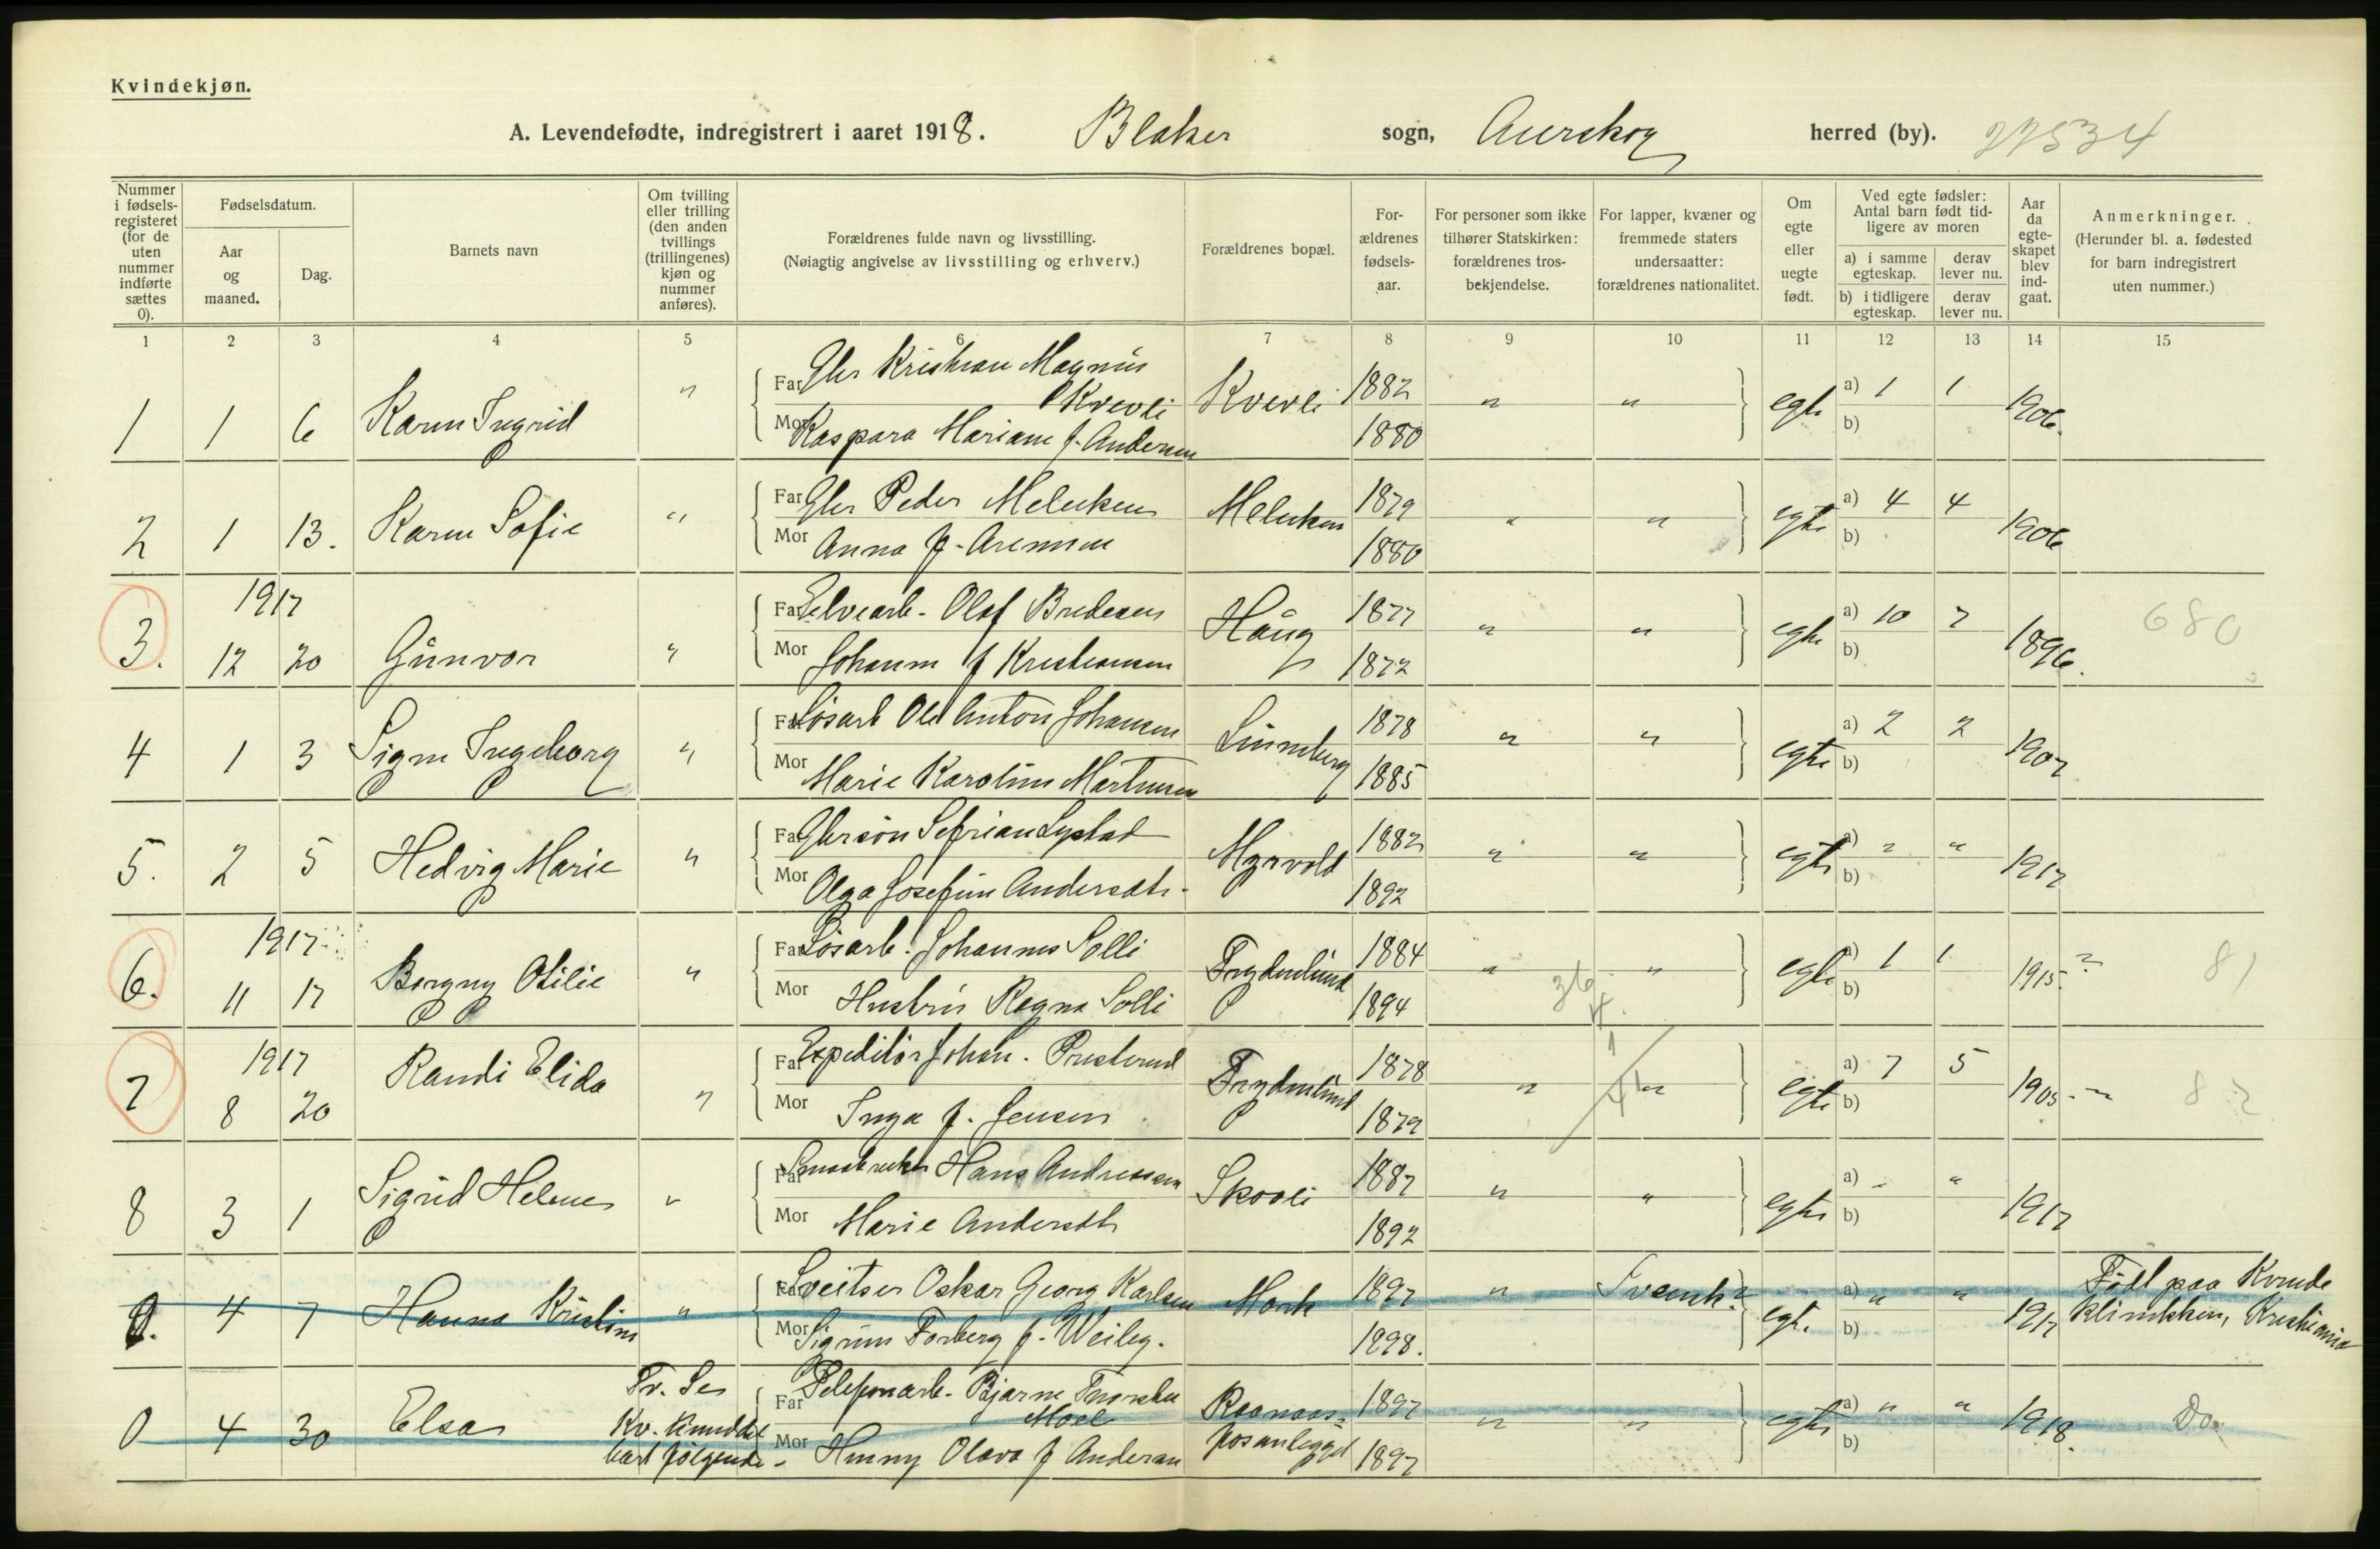 Kvindekjøn.
A. Levendefødte, indregistrert i aaret 1918. Blaker sogn, Aurskog herred (by). 22534
Nummer i fødsels-registeret (for de uten nummer indførte sættes 0).
Fødselsdatum.
Aar og maaned.
Dag.
Barnets navn
Om tvilling eller trilling (den anden tvillings (trillingenes) kjøn og nummer anføres).
Forældrenes fulde navn og livsstilling.
(Nøiagtig angivelse av livsstilling og erhverv.)
Forældrenes bopæl.
For-ældrenes fødsels-aar.
For personer som ikke tilhører Statskirken: forældrenes tros-bekjendelse.
For lapper, kvæner og fremmede staters undersaatter: forældrenes nationalitet.
Om egte eller uegte født.
Ved egte fødsler: Antal barn født tid-ligere av moren
a) i samme egteskap.
derav lever nu.
b) i tidligere egteskap.
derav lever nu.
Aar da egte-skapet blev ind-gaat.
Anmerkninger.
(Herunder bl. a. fødested for barn indregistrert uten nummer.)
1 2 3 4 5 6 7 8 9 10 11 12 13 14 15
1 1 6 Karen Ingrid " Far Gbr Kristian Magnus Kverli Kverli 1882 " " egte a) 1 1 1906.
Mor Kaspara Mariane f. Andersen 1880 b)
2 1 13. Karen Sofie " Far Gbr Peder Melnken 1879 " " egte a) 4 4 1906
Mor Anna f. Arnesen 1880 b)
1917
3. 12 20 Gunvor " Far Elvearb. Olaf Bredesen Haug 1877 " " egte a) 10 7 1896. 680
Mor Johanne f Kristiansen 1872 b)
4 1 3 Signe Ingeborg " Far Løsarb Ole Anton Johansen Linneberg 1878 " " egte a) 2 2 1907
Mor Marie Karoline Martinsen 1885 b)
5. 2 5 Hedvig Marie " Far Gbrsøn Sefrian Lystad Myrvold 1882 " " egte a) " " 1917
Mor Olga Josefine Andersdtr. 1892 b)
1917
6. 11 17 Borgny Otilie " Far Løsarb. Johannes Solli Frydenlund 1884 " " egte a) 1 1 1915 ? 81
Mor Hustru Ragna Solli 1894 b)
1917
7 8 20 Randi Elida " Far Expeditør Johan. Presterud Frydenlund 1878 " " egte a) 7 5 1905 82
Mor Inga f. Jensen 1879 b)
8 3 1 Sigrid Helene " Far Smaabruker Hans Andreassen Skooli 1887 " " egte a) " " 1917
Mor Marie Andersdtr 1892 b)
0. 4 7 Hanna Kristine " Far Sveitser Oskar Georg Karlsen Mork 1897 " Svensk? egte. a) " " 1917 Født paa Kvinde
Mor Sigrun Forberg f. Weiley. 1898. b) klinikken, Kristiania
0 4 30 Elsa Tv. Se Kv. Far Telefonarb. Bjarne Moel Raanaas- 1897 " " egte a) " " 1918. Do.
følgende. Mor Henny Olava f Andersen fosanlegget 1897 b)